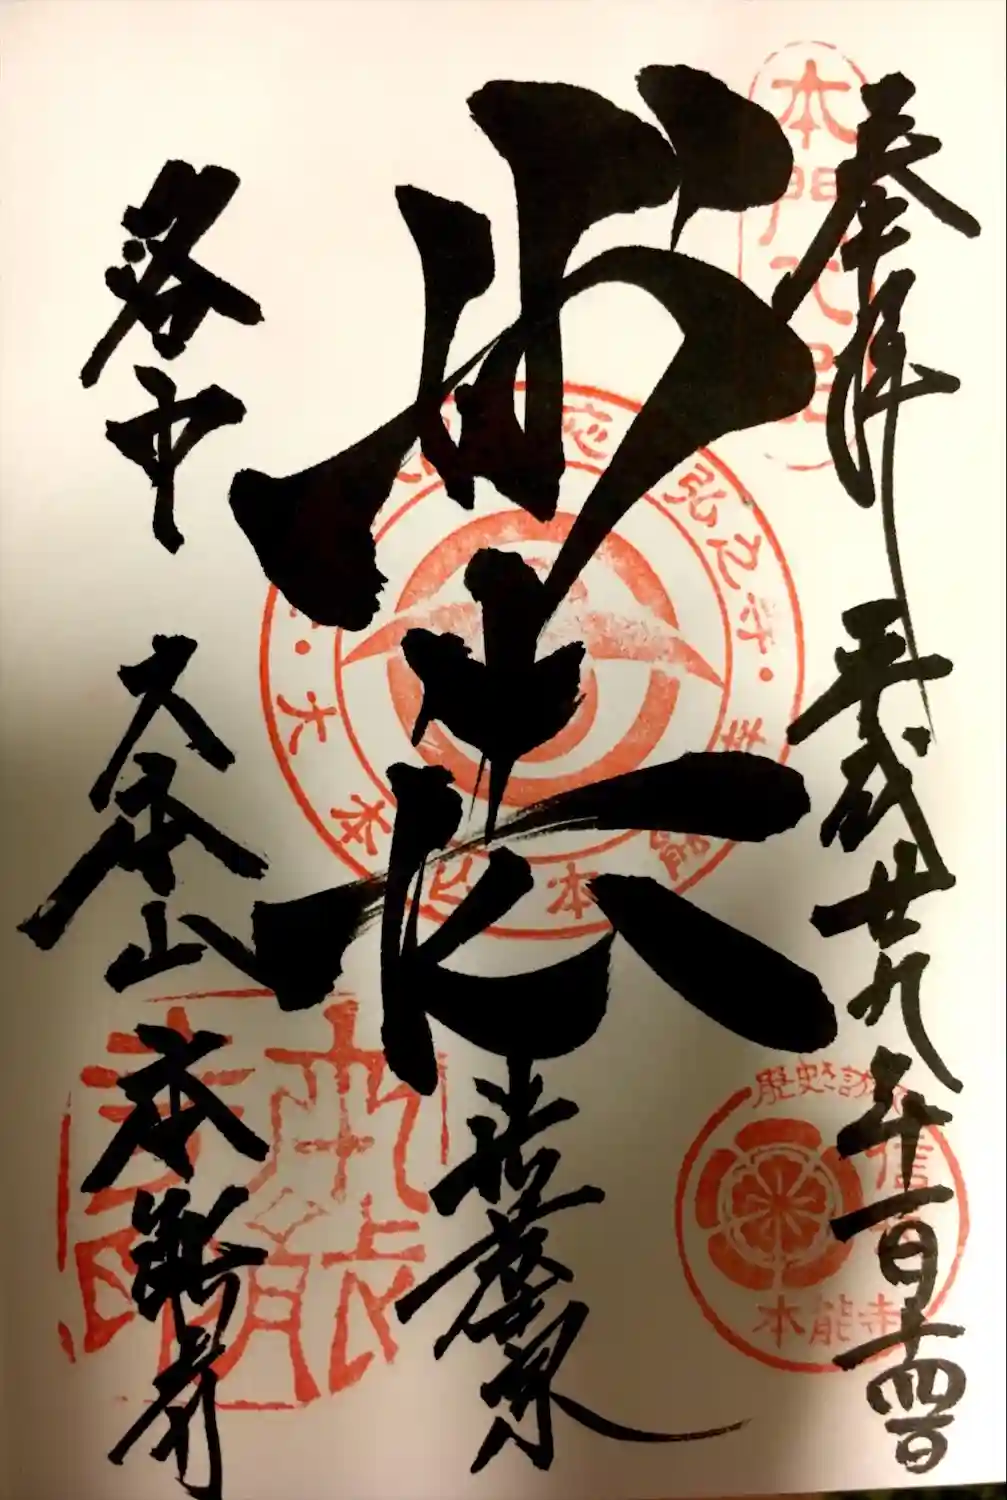 奉拝 平成廿九年一月十四日
妙法 蓮華経
洛中 大本山 本能寺
本門八品
弘之寺
大本山本
歴史探訪
信
本能寺
本能寺